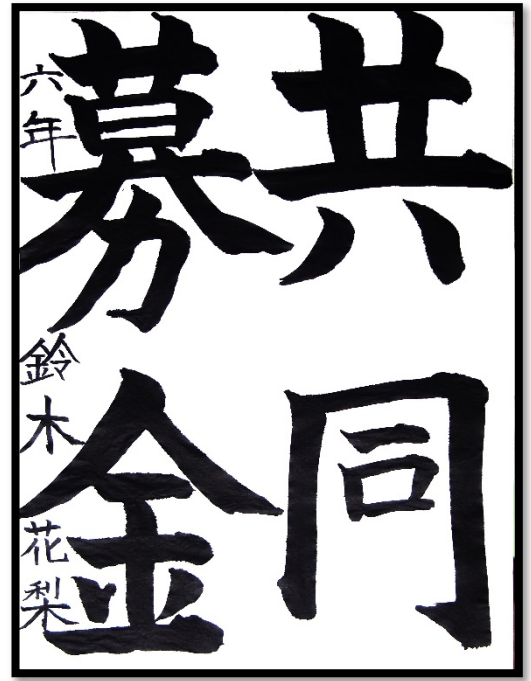 共同
募金
六年 鈴木 花梨